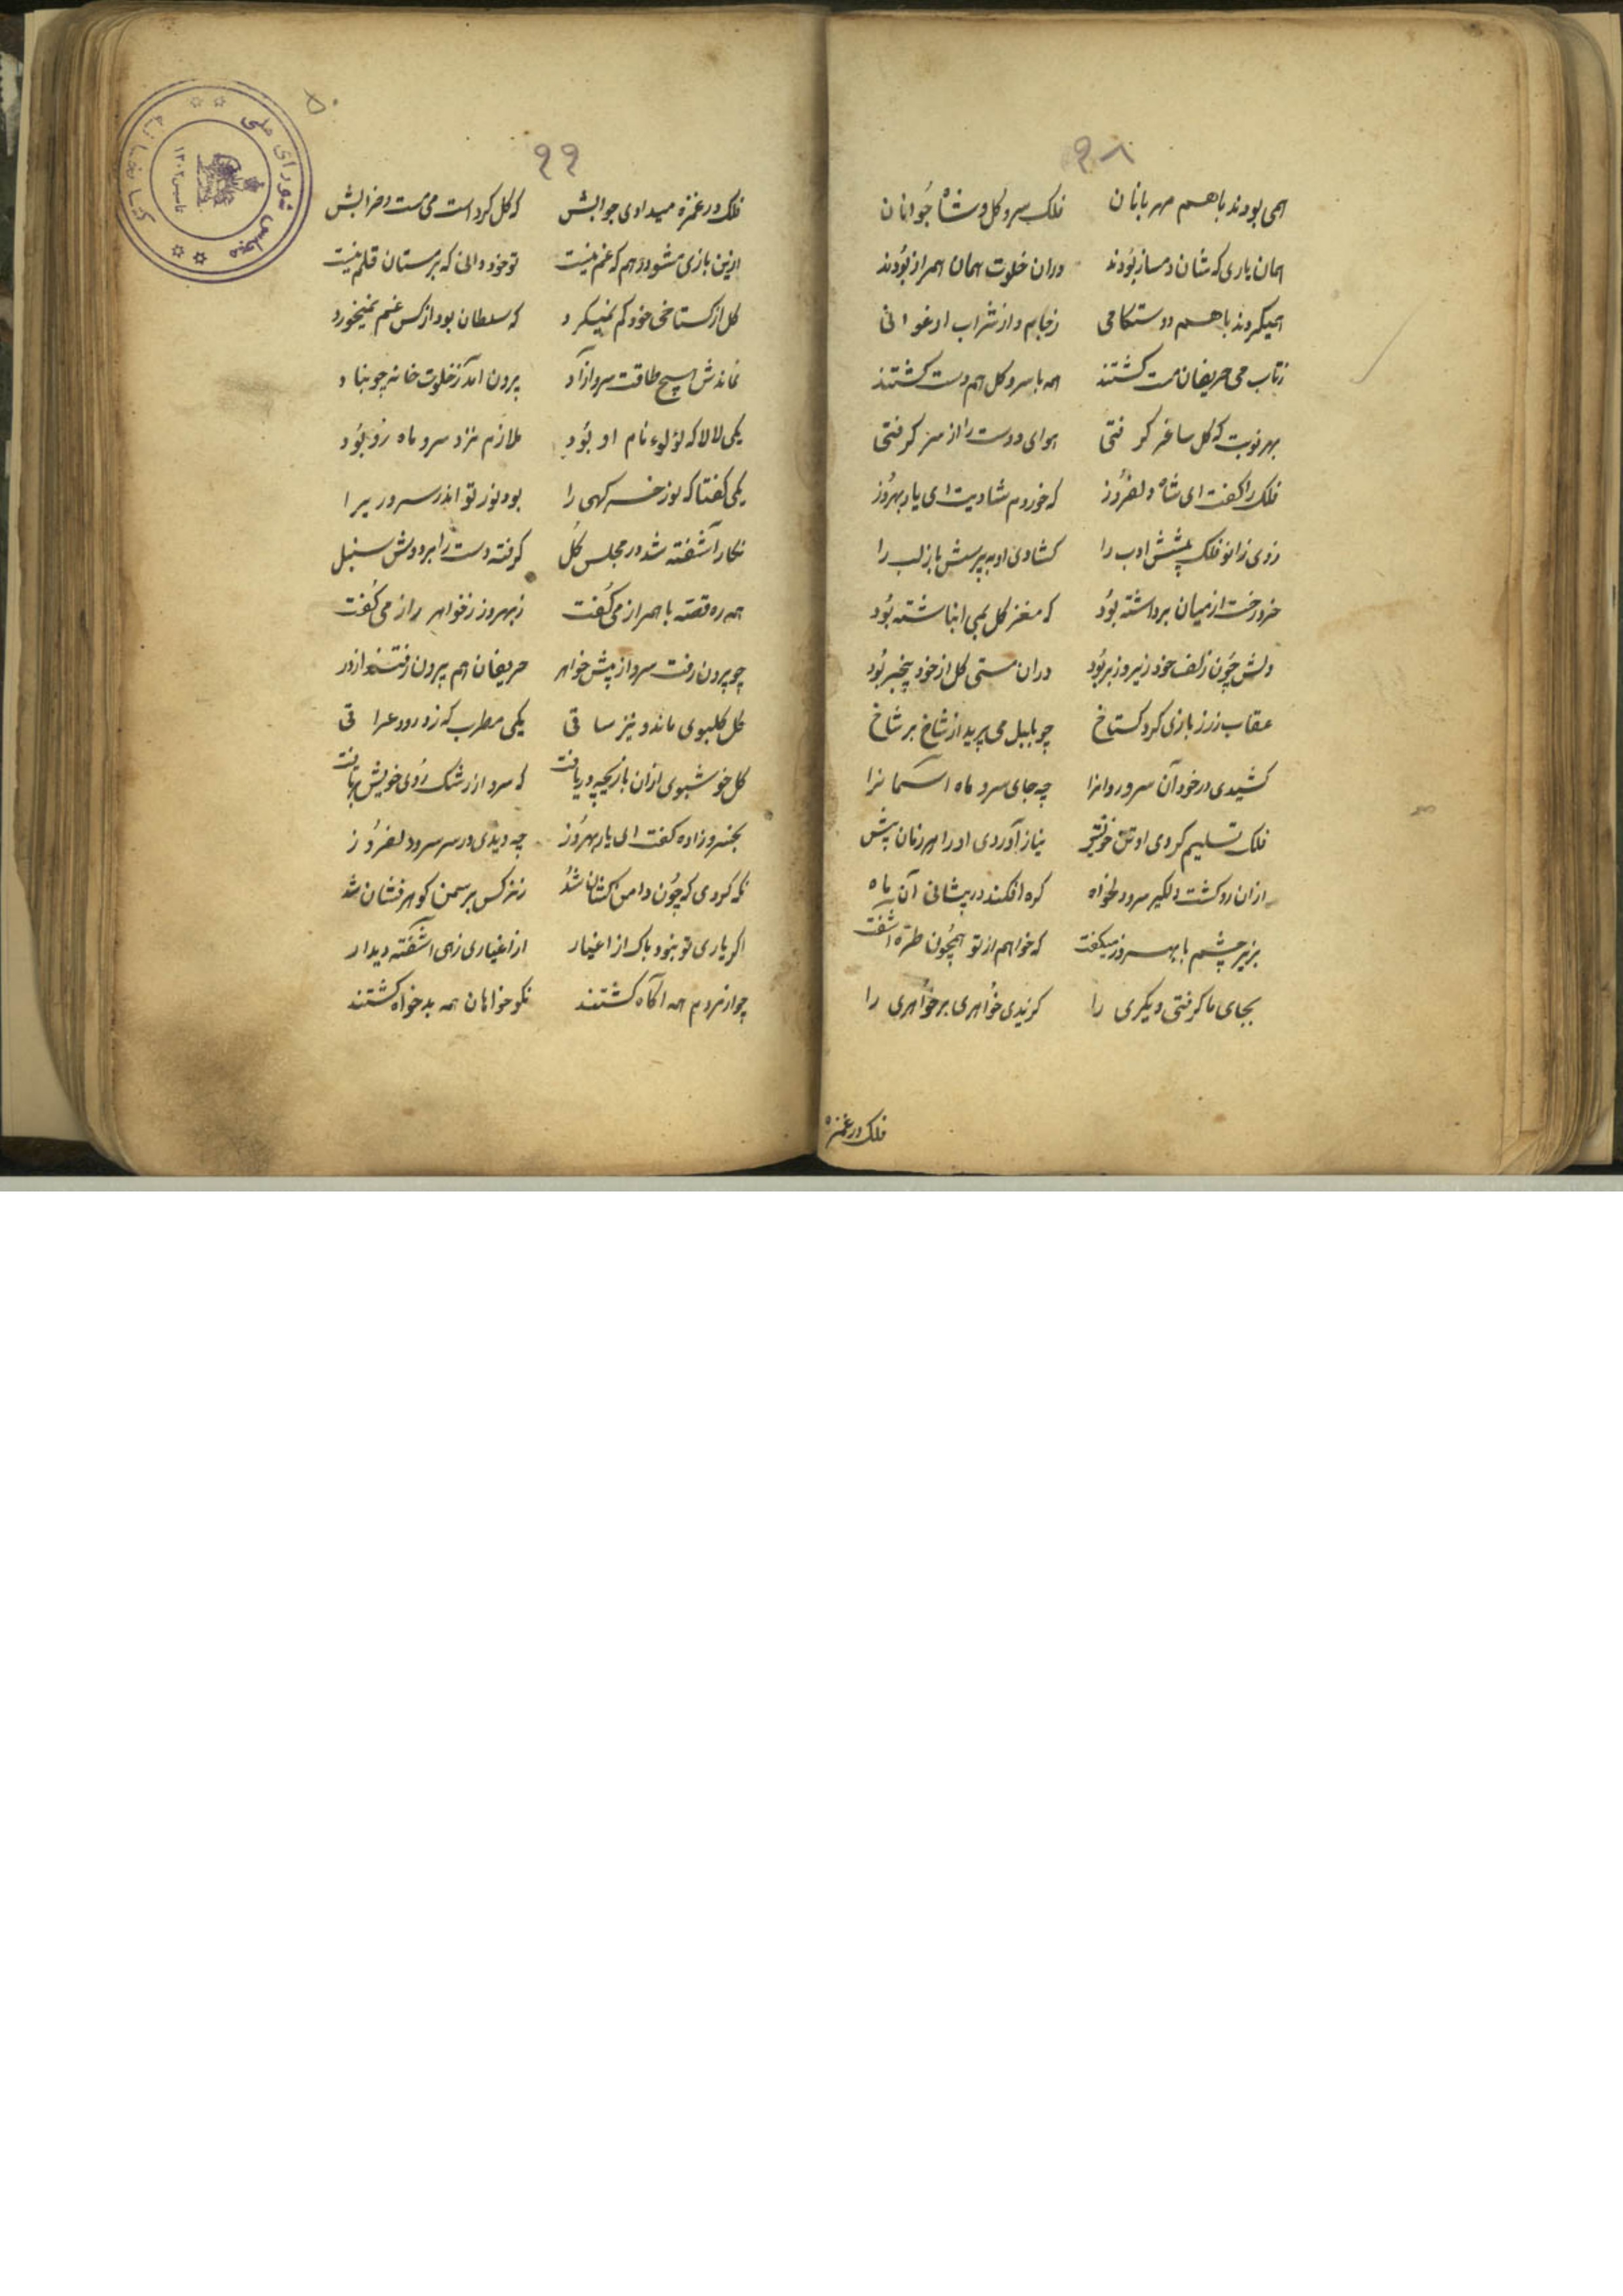 ۹۸
همی بودند باهم مهربانان فلک سرو گل و شاه جوانان
همان یاری که شان دمساز بودند دران خلوت همان همراز بودند
همیکردند باهم دوستکامی زجام و از شراب ارغوانی
زتاب می حریفان مست کشتند همه با سرو کل هم دست کشتند
بهر نوبت که کل ساغر کرفتی هوای دوست را از سر کرفتی
فلک را کفت ای شاه دلفروز که خوردم شادیت ای یار بهروز
زدی زانو فلک پیشش ادب را کشادی او به پرسش باز لب را
خرد رخت از میان برداشته بود که مغز کل بمی انباشته بود
دلش چون زلف خود زیر و زبر بود دران مستی کل از خود بیخبر بود
عقاب رز بازی کرد کستاخ چو بلبل می پرید از شاخ بر شاخ
کشیدی در خود آن سرو روانرا چه جای سرو ماه آسمانرا
فلک تسلیم کردی او تن خویش نیاز آوردی او را هر زمان پیش
ازان رو کشت دلکیر سرو دلخواه کره افکند در پیشانی آن ماه
بزیر چشم با بهروز میکفت که خواهم از تو همچون طره آشفت
بجای ما کرفتی دیکری را کزیدی خواهری بر خواهری را
فلک در غمزه
۹۹
۵۰
فلک در غمزه میدادی جوابش که کل کرد است می مست و خرابش
ازین بازی مشو درهم که غم نیست تو خود دانی که بر مستان قلم نیست
کل از کستاخی خود کم نمیکرد که سلطان بود از کس غم نمیخورد
نماندش هیچ طاقت سرو آزاد برون آمد زخلوت خانه چو بناد
یکی لالا که لؤلوء نام او بود ملازم نزد سرو ماه رو بود
یکی کفتا که نور کهی را بود نور تو اندر سرو
نکار آشفته شد در مجلس کل کرفته دست را بر دوش سنبل
همه ره قصه با همراز می کفت زبهروز زخواهر راز می کفت
چو بیرون رفت سرو از پیش خواهر حریفان هم برون رفتند از در
کل کلبوی ماند و نیز ساقی یکی مطرب که زد رود عراقی
کل خوشبوی ازان بازیچه دریافت که سرو از رشک روی خویش برتافت
بخسرو زاده کفت ای یار بهروز چه دیدی در سر سرو دلفروز
نکه کردی که چون دامن کشان شد زنرکس بر سمن کوهر فشان شد
اکر یاری تو نبود باک از اغیار از اغیاری زهی آشفته دیدار
چو از مردم همه آکاه کشتند نکو خواهان همه بدخواه کشتند
کتابخانه مجلس شورای ملی
تاسیس ۱۳۰۲